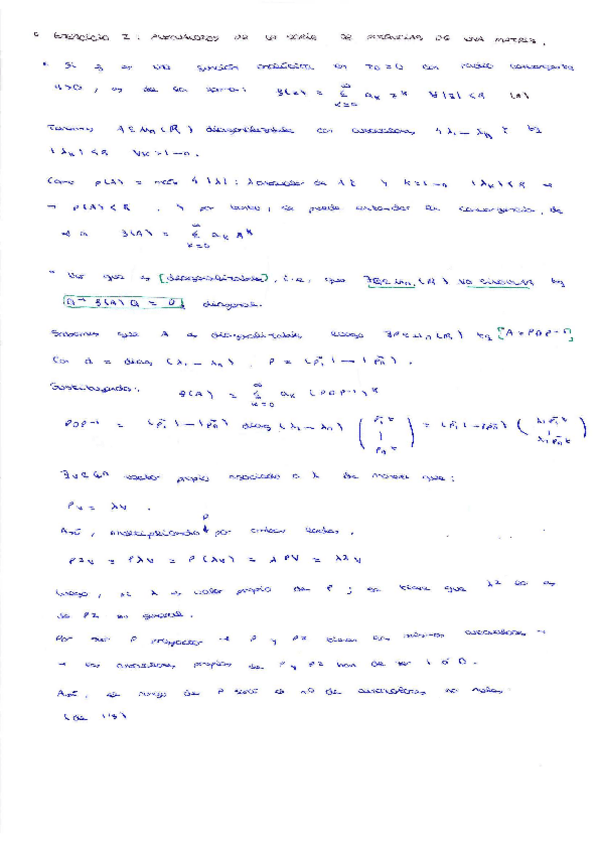 EJERCICIO 2: AUTOVALORES DE LA SERIE DE POTENCIAS DE UNA MATRIZ.
Si f es una función analítica en x0=0 con radio convergencia
R>0, es de la forma: f(z) = ∞Σk=0 ak z^k ∀|z|<R
Tenemos A∈Mn(R) diagonalizable con autovalores {λ1 – λn} tq
|λk|<R ∀k=1–n.
Como ρ(A) = máx {|λ|: λ autovalor de A} y k=1–n |λk|<R →
→ ρ(A)<R. Y por tanto, se puede extender la convergencia, de
f(A) = ∞Σk=0 ak A^k
Ver que es [diagonalizable], i.e, que ∃Q∈Mn(R) NO SINGULAR tq
Q^-1 f(A) Q = D, diagonal.
Sabemos que A es diagonalizable luego ∃P∈Mn(R) tq [A = PDP^-1]
Con d = diag(λ1 – λn). P = (p1 | – | pn).
Sustituyendo: f(A) = ∞Σk=0 ak (PDP^-1)^k
PDP^-1 = (p1 | – | pn) diag(λ1 – λn) (p1^t | pn^t) = (p1 | – | pn) (λ1 p1^t | λn pn^t)
∃v∈ℂ^n vector propio asociado a λ de manera que:
Pv = λv.
Así, multiplicando P por ambos lados,
P²v = Pλv = P(λv) = λPv = λ²v
Luego, si λ es valor propio de P; se tiene que λ² lo es
de P² en general.
Por ser P proyector → P y P² tienen los mismos autovalores →
→ los autovalores propios de P y P² han de ser 1 ó 0.
Así, el rango de P será el nº de autovalores no nulos
(de 1's)